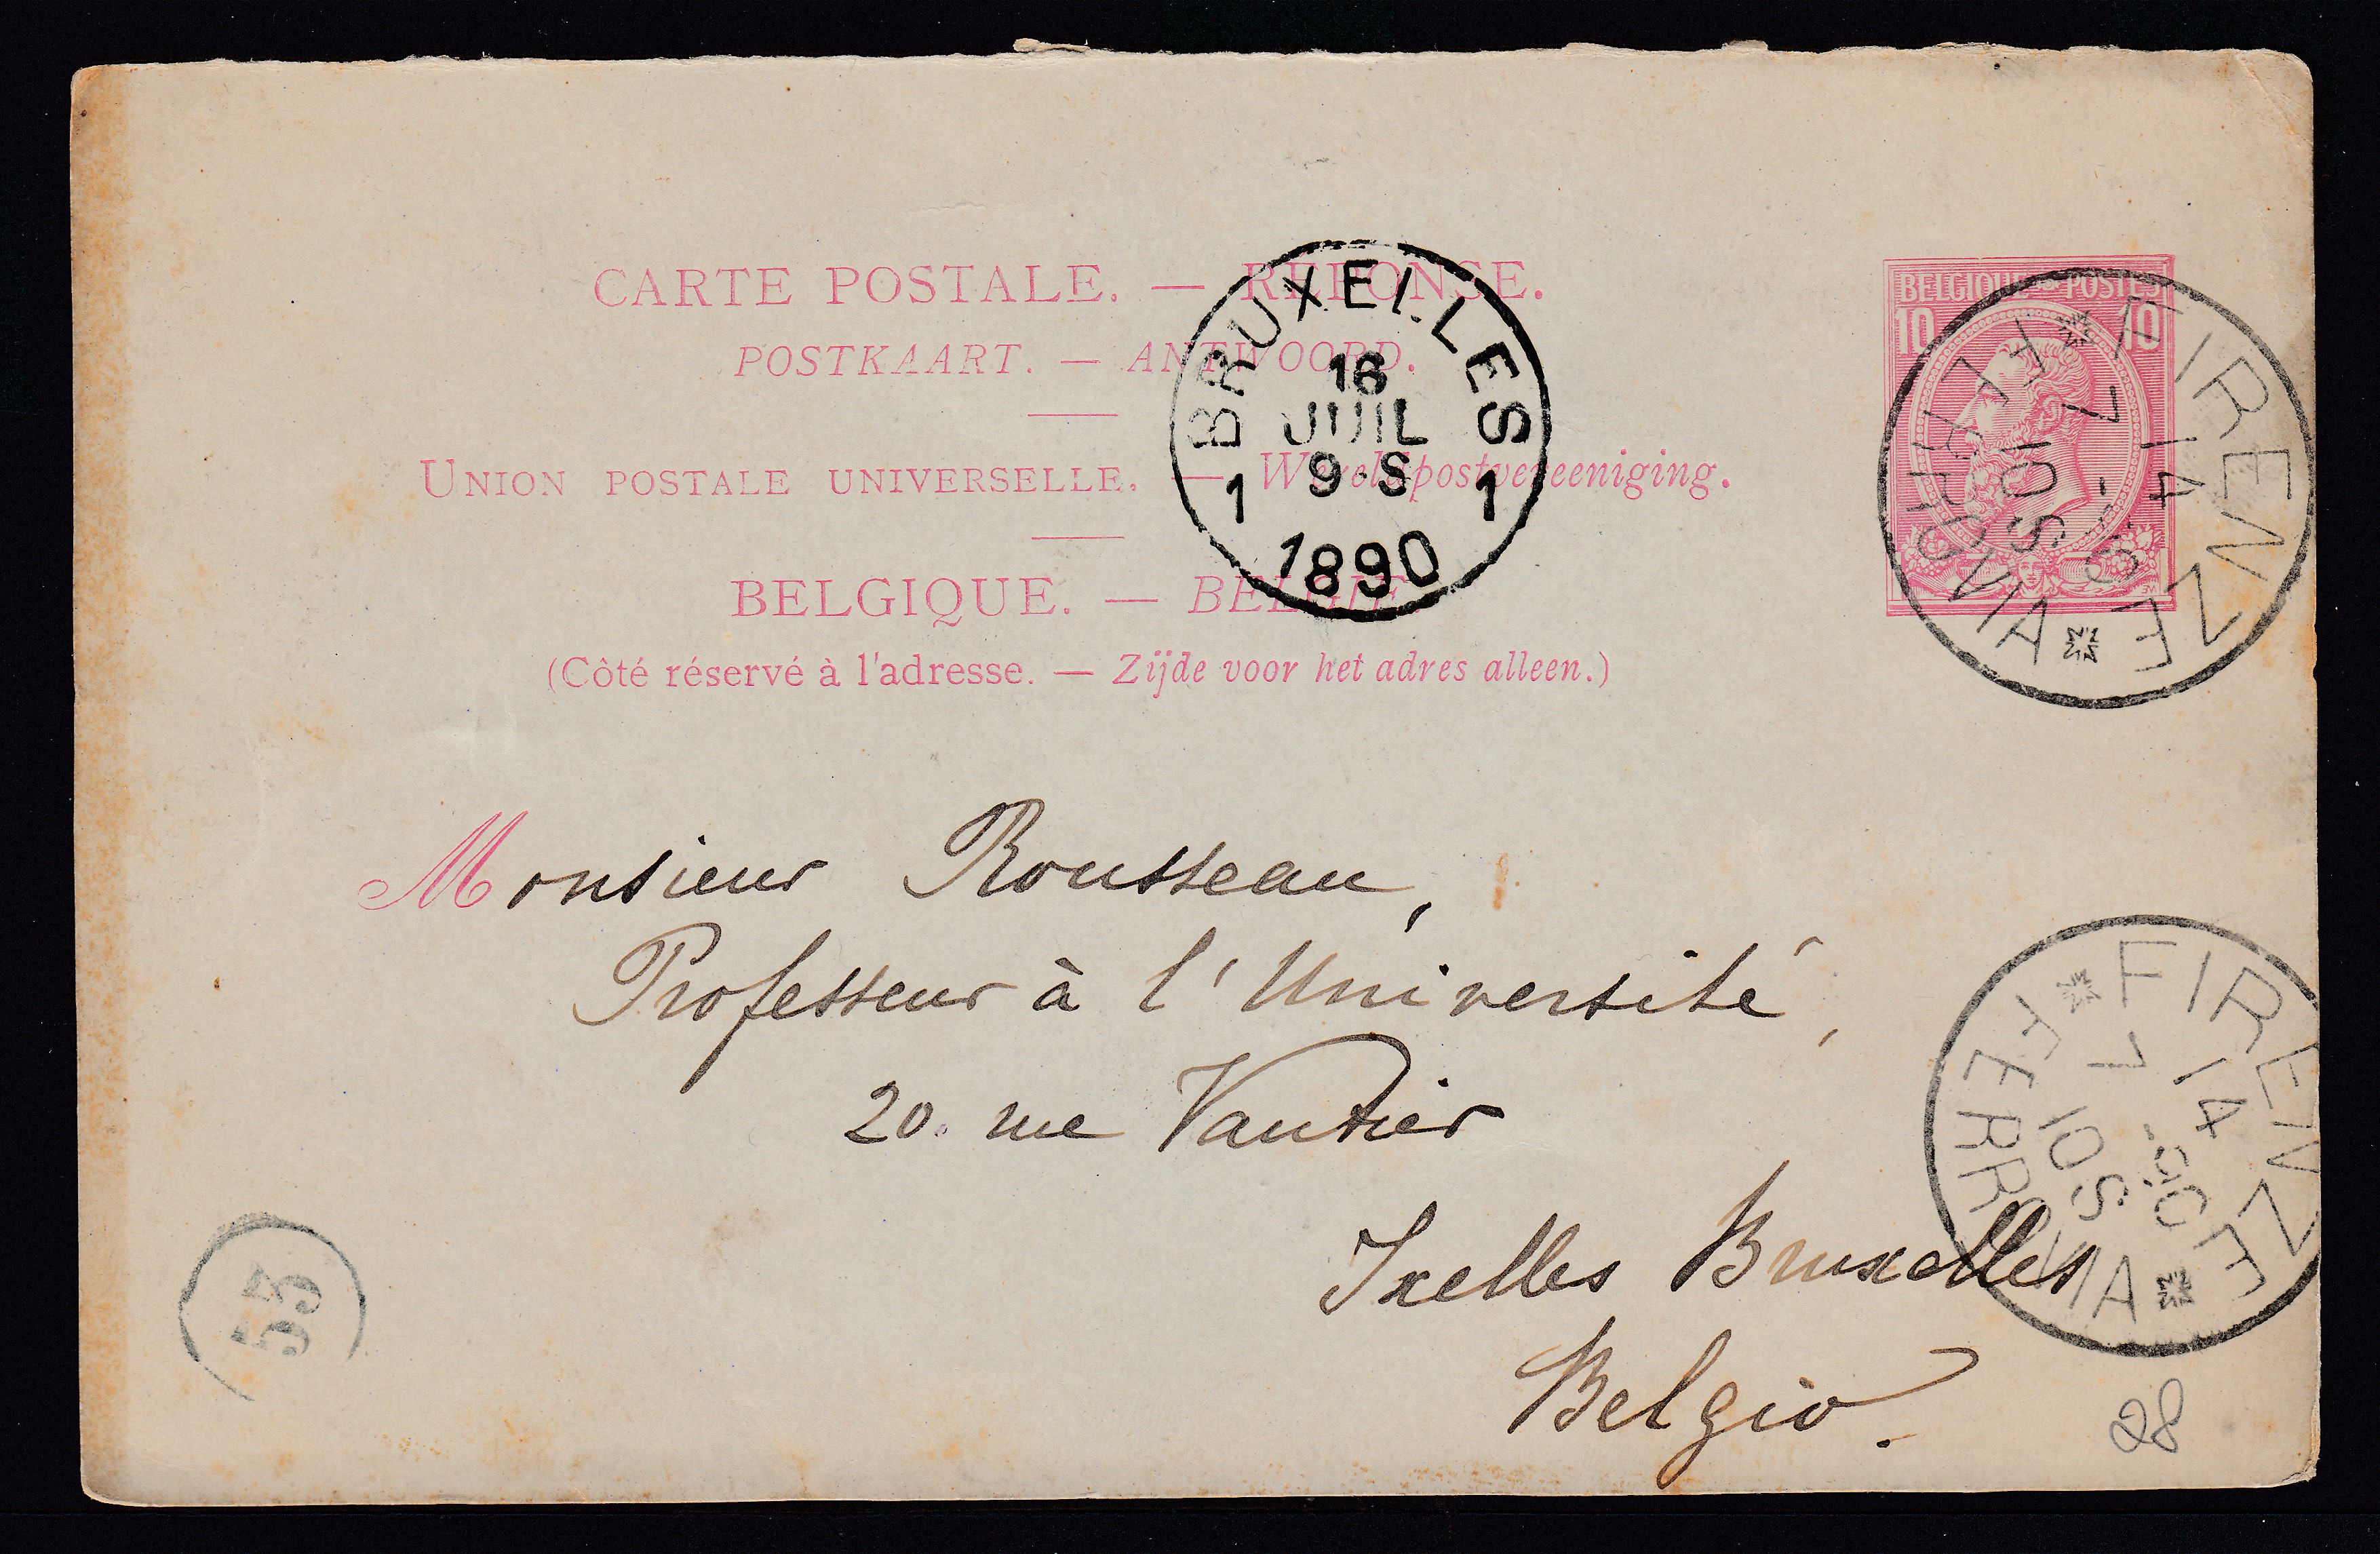 CARTE POSTALE. — RÉPONSE.
POSTKAART. — ANTWOORD.
UNION POSTALE UNIVERSELLE. — Wereldpostvereeniging.
BELGIQUE. — BELGIE.
(Côté réservé à l'adresse. — Zijde voor het adres alleen.)
BRUXELLES
16
JUIL
9·S
1 1
1890
BELGIQUE POSTES
10 10
FIRENZE
14
7 -90
10S
FERROVIA
Monsieur Rousseau,
Professeur à l'Université,
20. rue Vautier
Ixelles Bruxelles
Belgio.
FIRENZE
14
7 -90
10S
FERROVIA
55
28